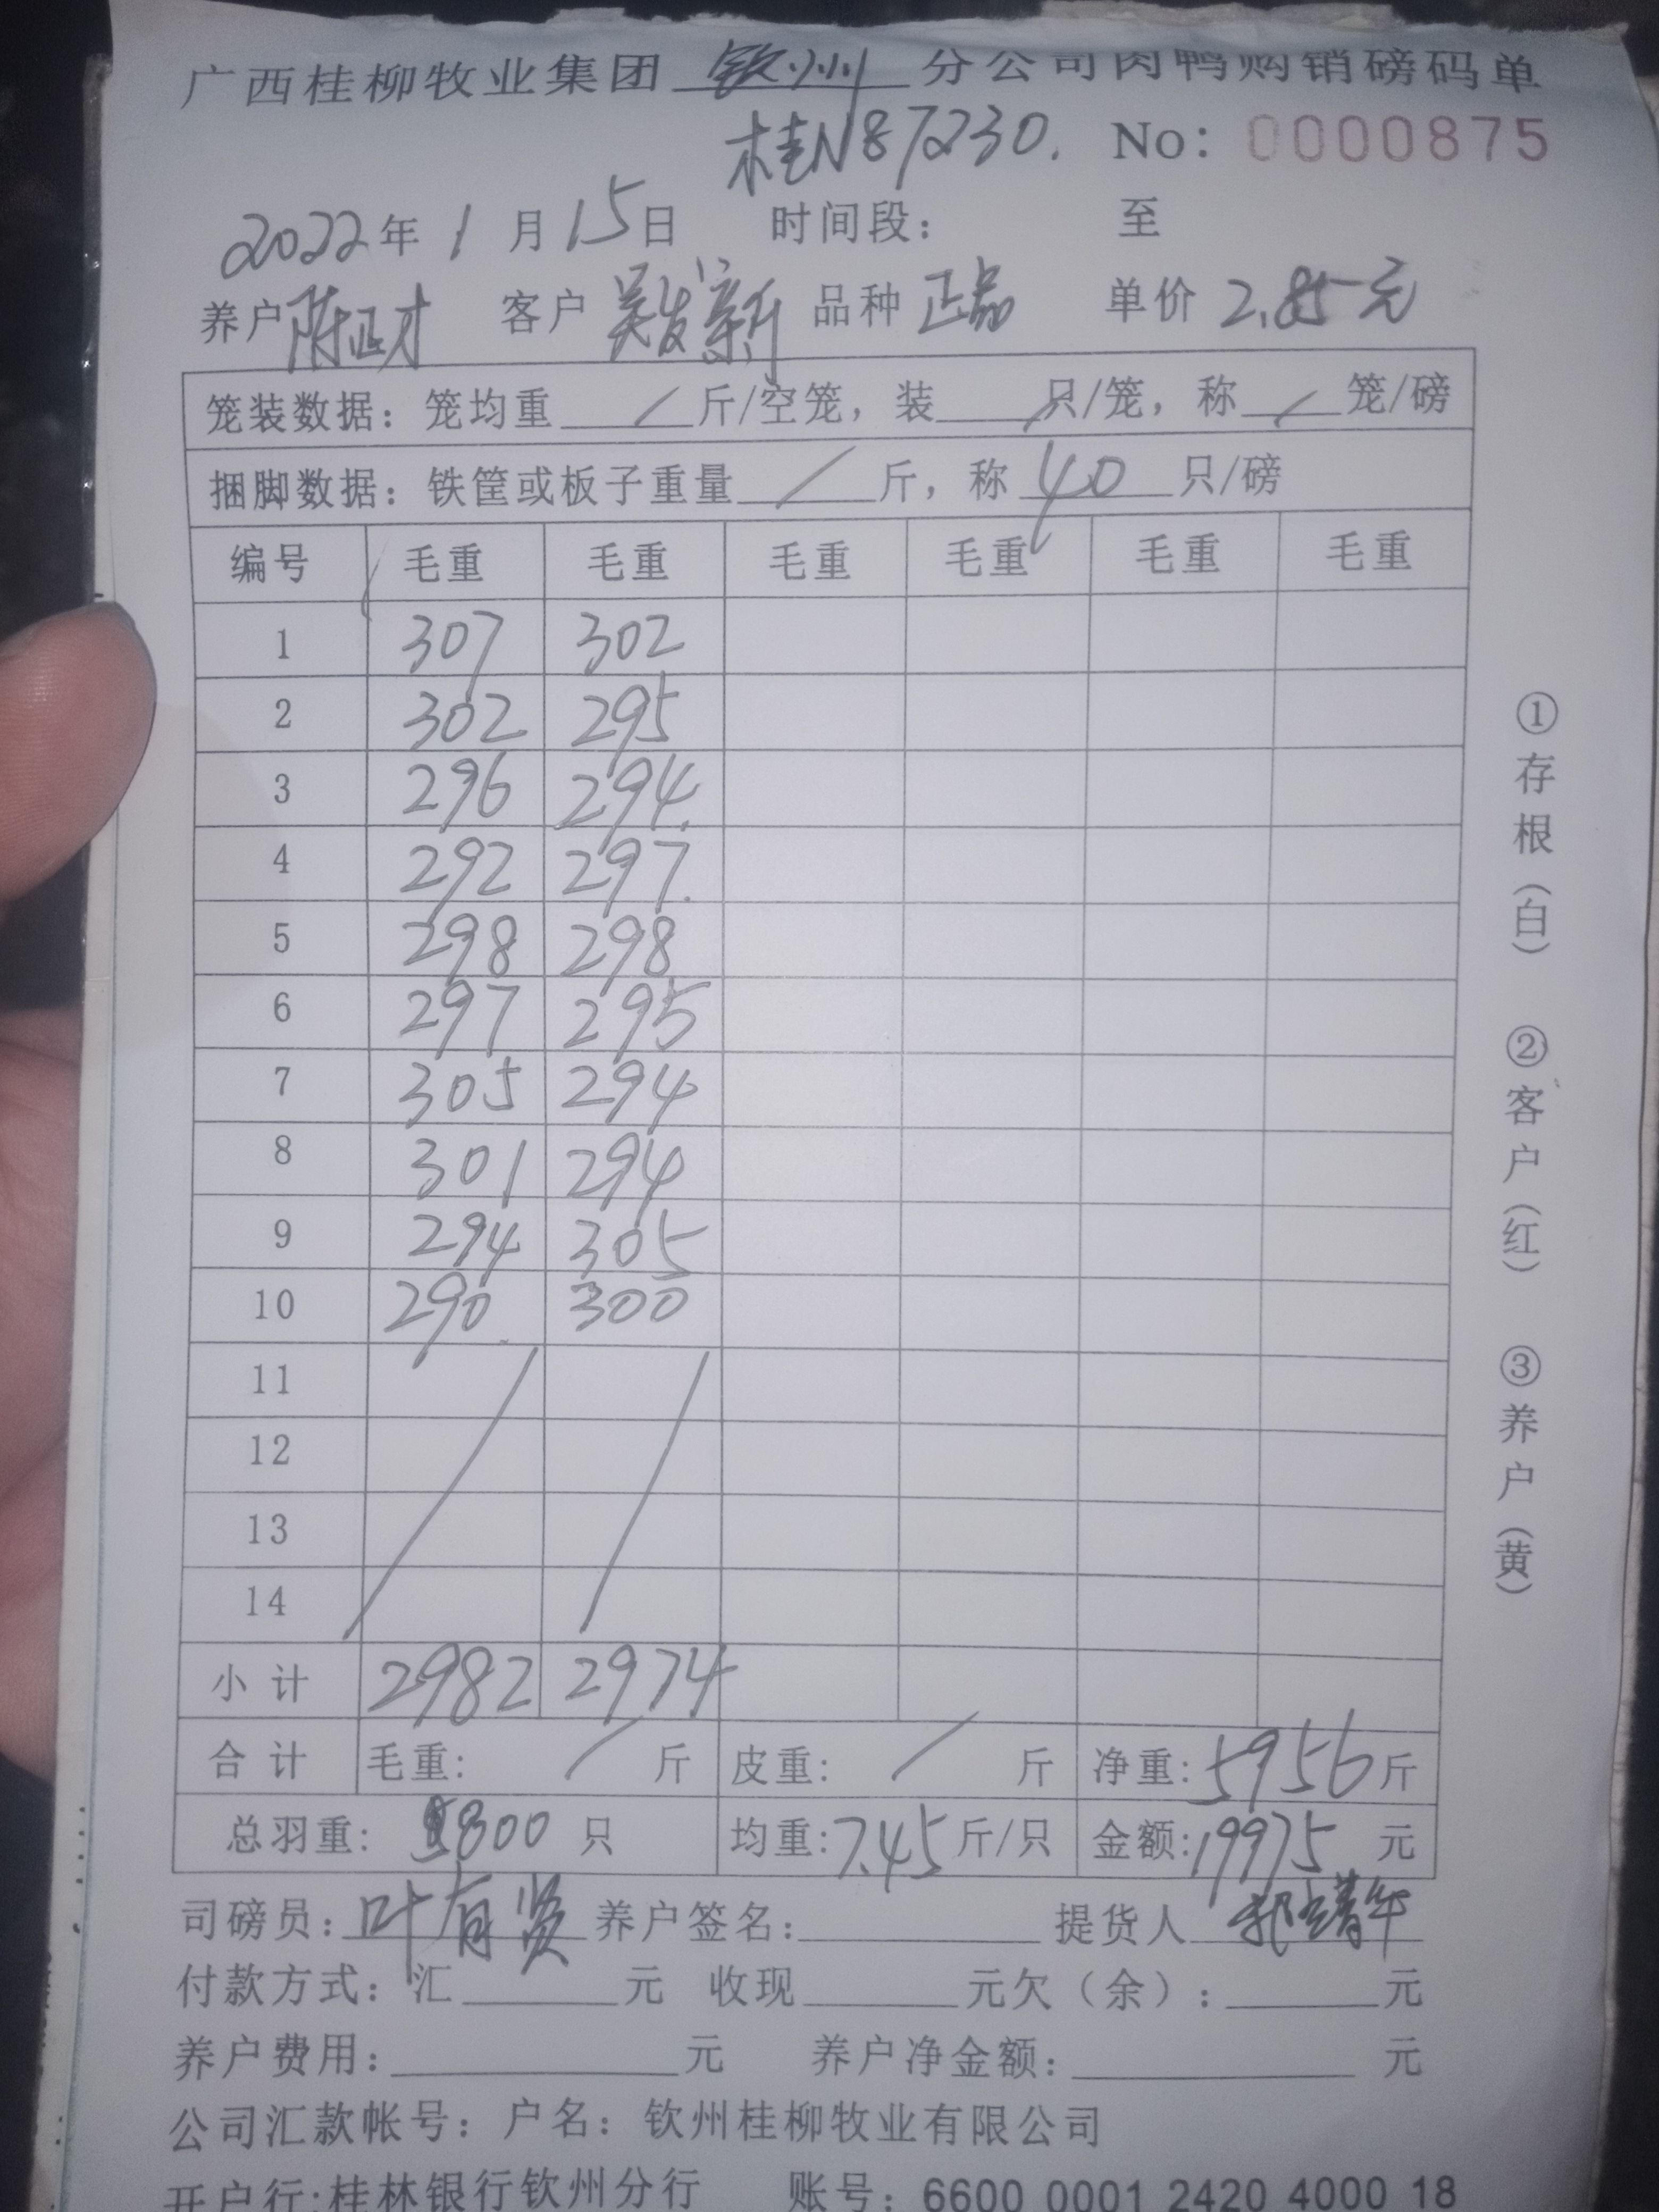 广西桂柳牧业集团 钦州 分公司肉鸭购销磅码单
桂N87230. No: 0000875
2022年 1 月 15日 时间段: 至
养户 陈正才 客户 吴发新 品种 正品 单价 2.85元
笼装数据: 笼均重 / 斤/空笼, 装 / 只/笼, 称 / 笼/磅
捆脚数据: 铁筐或板子重量 / 斤, 称 40 只/磅
编号 毛重 毛重 毛重 毛重 毛重 毛重
1 307 302
2 302 295
3 296 294.
4 292 297.
5 298 298
6 297 295
7 305 294
8 301 294
9 294 305
10 290. 300
11
12
13
14
小计 2982 2974
合计 毛重: / 斤 皮重: / 斤 净重: 5956斤
总羽重: 800 只 均重: 7.45斤/只 金额: 19975 元
司磅员: 叶有贤 养户签名: 提货人
付款方式: 汇 元 收现 元欠(余): 元
养户费用: 元 养户净金额: 元
公司汇款帐号: 户名: 钦州桂柳牧业有限公司
开户行:桂林银行钦州分行 账号: 6600 0001 2420 4000 18
①存根(白) ②客户(红) ③养户(黄)